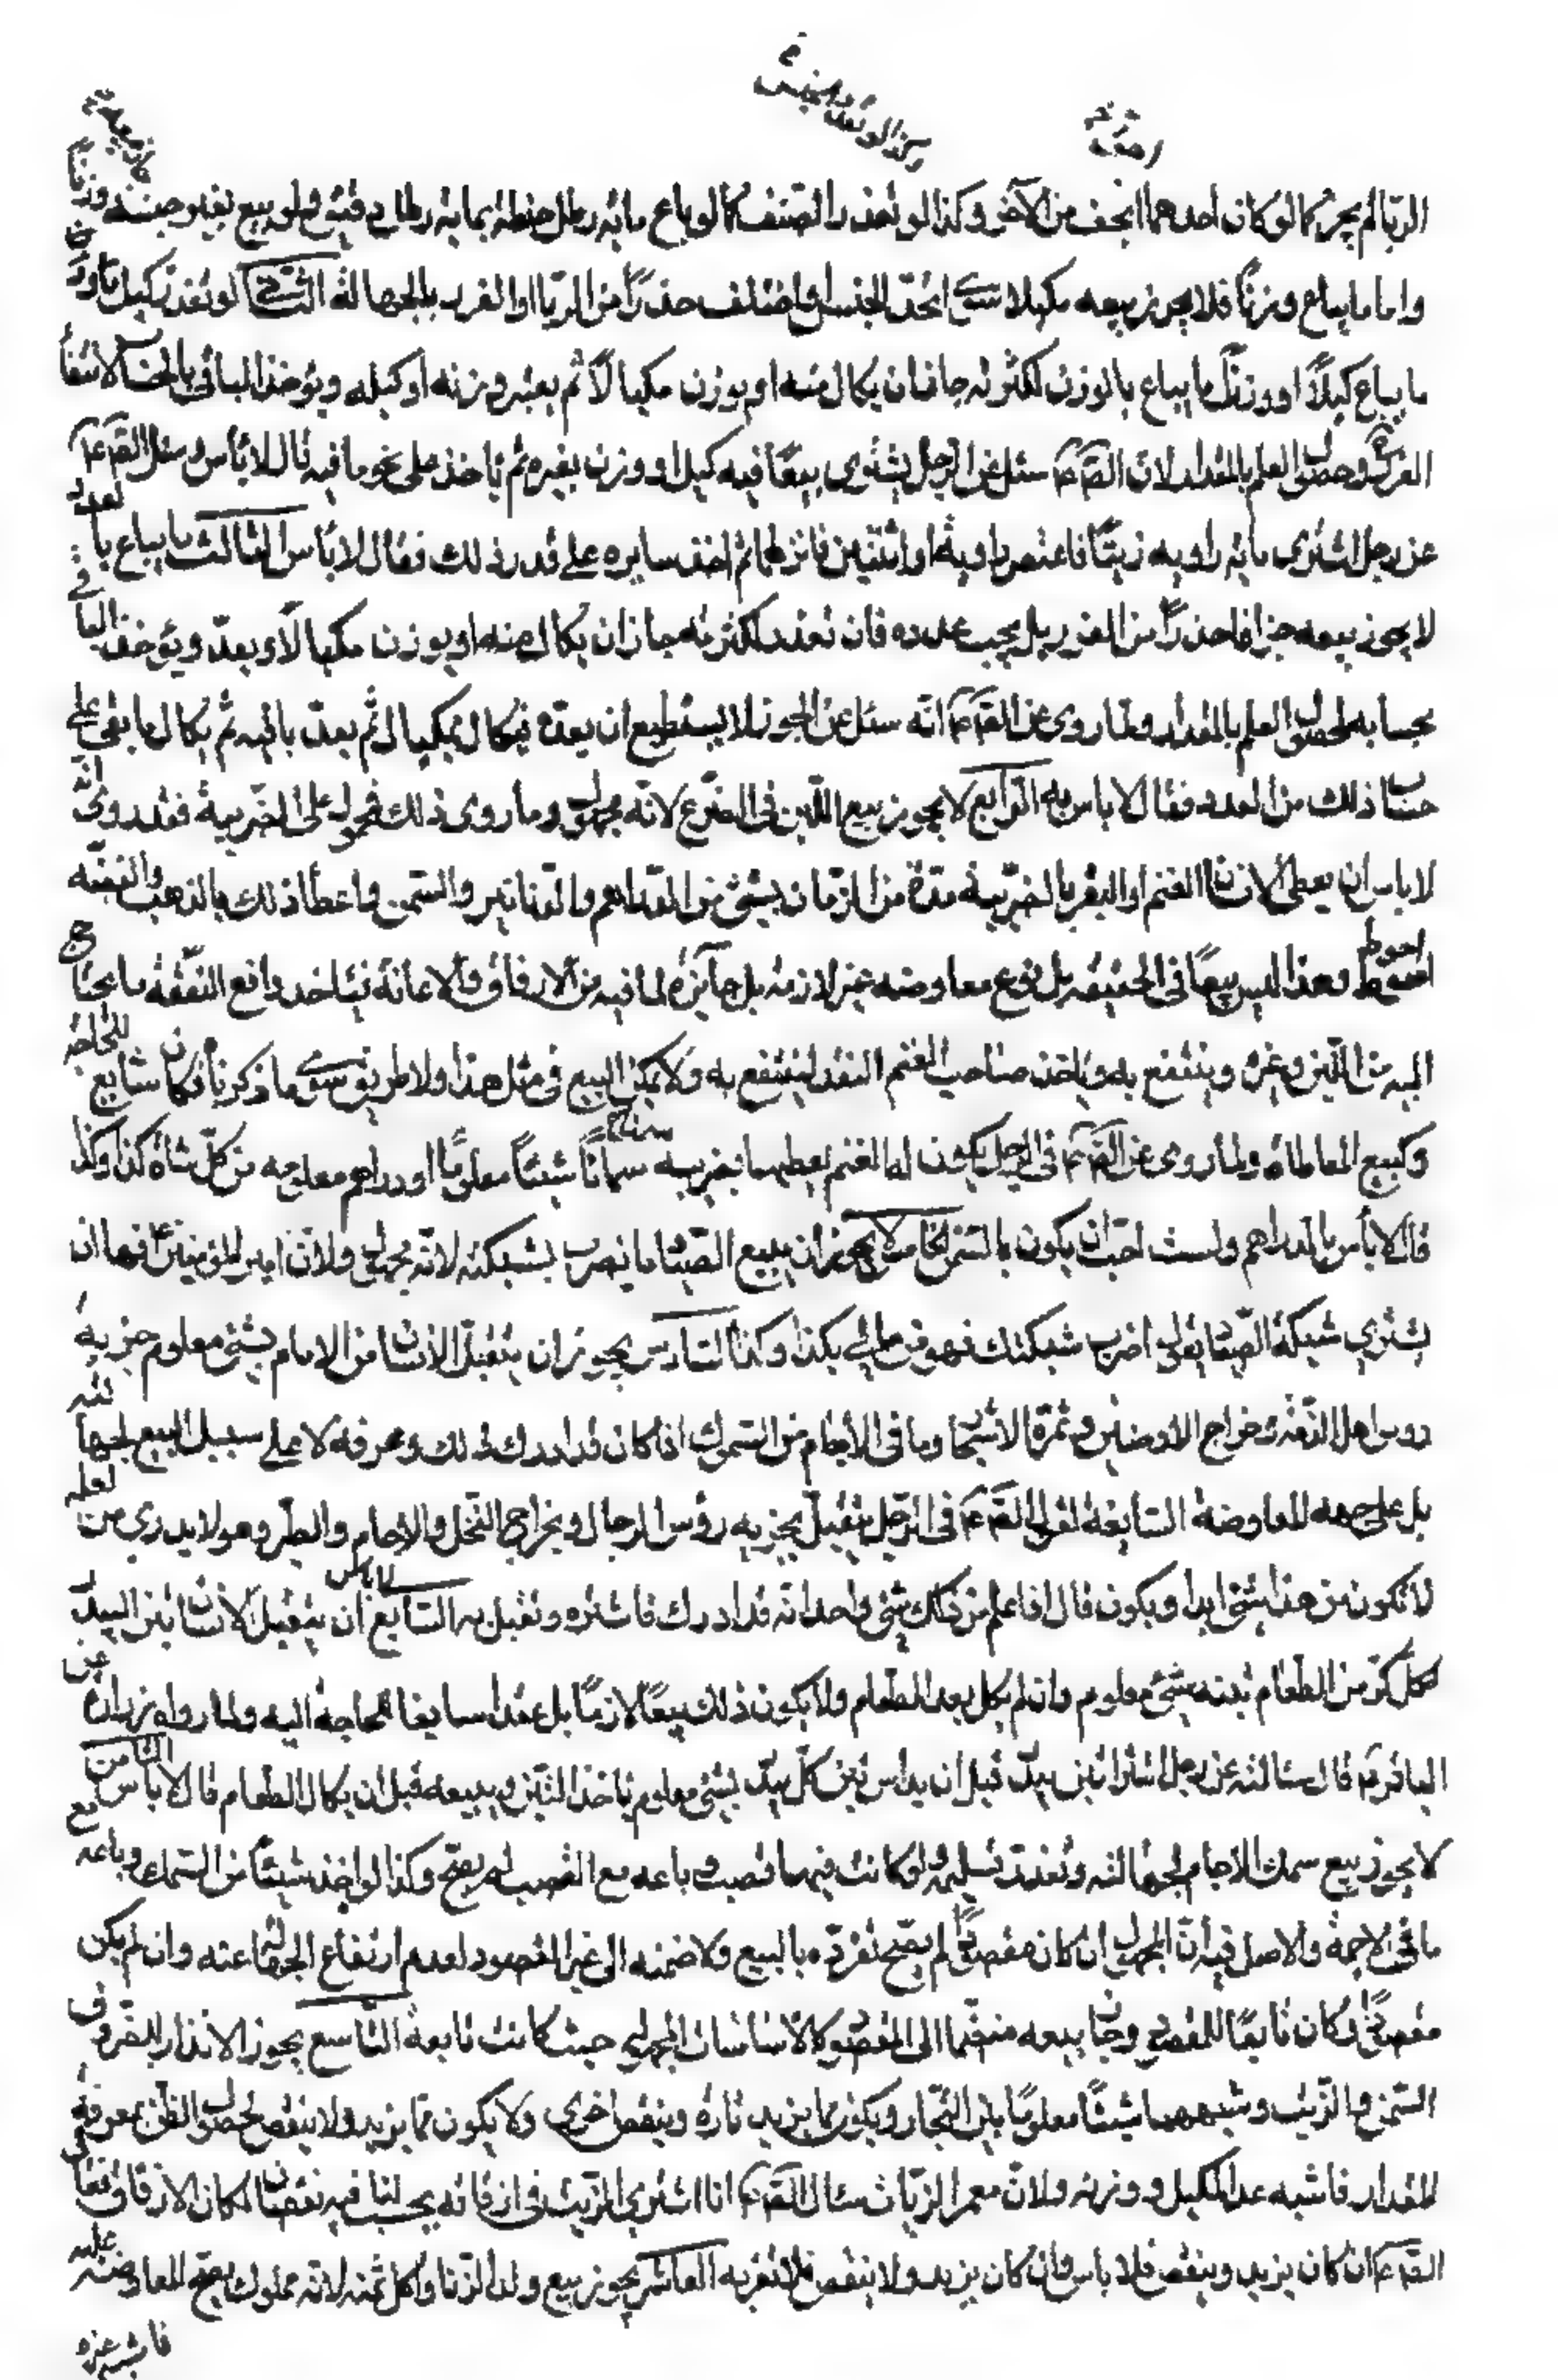 الربا لم يجز كما لو كان احدهما اخف من الآخر وكذا لو تعذر النصف كما لو باع مائة رطل حنطة بمائة رطل دقيق ولو بيع بغير جنسه وزنًا
واما ما يباع وزنًا فلا يجوز بيعه مكيلا سواء اتحد الجنس او اختلف حذرًا من الربا او الغرر بالجهالة الثاني لو تعذر كيل
ما يباع كيلًا او وزن ما يباع بالوزن لكثرته جاز ان يكال منه او يوزن مكيالًا ثم يعتبر وزنه او كيله ويؤخذ الباقي بالحساب لانتفاء
الغرر وحصول العلم بالمقدار لان الصم سئل عن الرجل يشتري بيعًا فيه كيل او وزن بغيره ثم ياخذ على نحو ما فيه قال لا باس وسئل الصم عم
عن رجل اشترى مائة راوية زيتًا فاعترض راوية او اثنتين فاتزنهما ثم اخذ سايره على قدر ذلك فقال لا باس الثالث ما يباع بالعدد
لا يجوز بيعه جزافا حذرًا من الغرر بل يجب عدده فان تعذر لكثرته جاز ان يكال منه او يوزن مكيالًا ويعدّ ويؤخذ الباقي
بحسابه لحصول العلم بالمقدار ولما روى عن الصم عم انه سئل عن الجوز لا يستطيع ان يعدّه فيكال بمكيال ثم يعدّ ما فيه ثم يكال ما بقى على
حساب ذلك من العدد فقال لا باس به الرابع لا يجوز بيع اللبن فى الضرع لانه مجهول وما روى ذلك فمحمول على الضريبة فقد روى انه
لا باس ان يعطى الانسان الغنم او البقر بالضريبة مدة من الزمان بشئ من الدراهم والدنانير والسمن واعطاء ذلك بالذهب والفضه
احوط وهذا ليس بيعًا فى الحقيقه بل نوع معاوضه غير لازمة بل جائزة لما فيه من الارفاق والاعانة فياخذ دافع النفقة ما يحتاج
اليه من اللبن وغيره وينتفع به وياخذ صاحب الغنم النقد لينتفع به ولا يمكن البيع فى مثل هذا ولا طريق سوى ما ذكرناه فكان سايغ للحاجة
وكبيع المعاطاة ولما روى عن الصم عم فى الرجل يكون له الغنم يعطيها بضريبه سمنًا شيئًا معلومًا او دراهم معلومه من كل شاة كذا وكذا
قال لا باس بالدراهم ولست احب ان يكون بالسمن الخامس لا يجوز ان يبيع الصياد ما يضرب بشبكته لانه مجهول ولان امير المؤمنين ع نهى ان
يشتري شبكة الصياد يقول اضرب شبكتك فما خرج فهو من مالى بكذا وكذا السادس يجوز ان يتقبل الانسان من الامام بشئ معلوم جزية
روس اهل الذمة وخراج الارضين وثمرة الاشجار وما فى الاجام من السموك اذا كان قد ادرك ذلك وعرفه لا على سبيل البيع لجهالته
بل على جهه المعاوضة السايغة لقول الصم عم فى الرجل يتقبل بجزيه رؤس الرجال وبخراج النخل والاجام والطير وهو لا يدري من لعله
لا تكون من هذا شئ ابدا ويكون قال اذا علم من ذلك شئ واحد انه قد ادرك فاشتره وتقبل به السابع لا باس ان يتقبل الانسان تبن البيدر
لكل كر من الطعام تبنه بشئ معلوم وان لم يكل بعد الطعام ولا يكون ذلك بيعًا لازمًا بل عقدا سايغا للحاجة اليه ولما رواه زرارة عن
الباقر عم قال سالته عن رجل اشترى تبن بيدر قبل ان يداس تبن كل بيدر بشئ معلوم ياخذ التبن ويبيعه قبل ان يكال الطعام قال لا باس الثامن
لا يجوز بيع سمك الاجام لجهالته وتعذر تسليمه ولو كانت فيها قصب وباعه مع القصب لم يصح وكذا لو اخذ شيئًا من السمك وباعه مع
ما فى الاجمة والاصل فيه ان المجهول ان كان مقصودًا لم يصح تفرده بالبيع ولا ضمنه الى غير المقصود لعدم ارتفاع الجهالة عنه وان لم يكن
مقصودًا وكان تابعًا للمقصود جاز بيعه منضمًا الى المقصود كالاساسات المجهولة حيث كانت تابعة التاسع يجوز الانذار للظروف فى
السمن والزيت وشبههما شيئًا معلومًا بين التجار ويكون مما يزيد تارة وينقص اخرى ولا يكون مما يزيد ولا ينقص لحصول الظن بمعرفة
المقدار فاشبه عد المكيل ووزنه ولان معمر الزيات سال الصم عم انا اشترى الزيت فى ازقاقه يحسب لنا فيه نقصان لمكان الازقاق فقال
الصم عم ان كان يزيد وينقص فلا باس وان كان يزيد ولا ينقص فلا تقربه العاشر يجوز بيع ولد الزنا واكل ثمنه لانه مملوك يصح المعاوضة عليه
فاشبه غيره